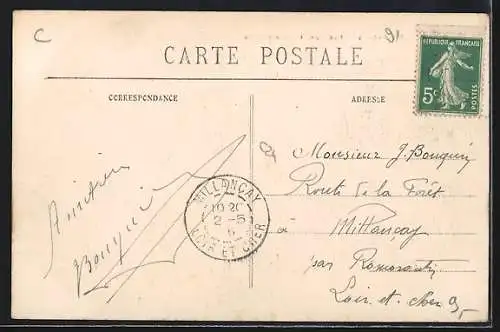 C
91
CARTE POSTALE
CORRESPONDANCE
ADRESSE
REPUBLIQUE FRANÇAISE
5c
POSTES
Bouquin
MILLANÇAY
10 20
2 - 5
LOIR ET CHER
Monsieur J. Bouquin
Route de la Forêt
à Millançay
par Romorantin
Loir et cher